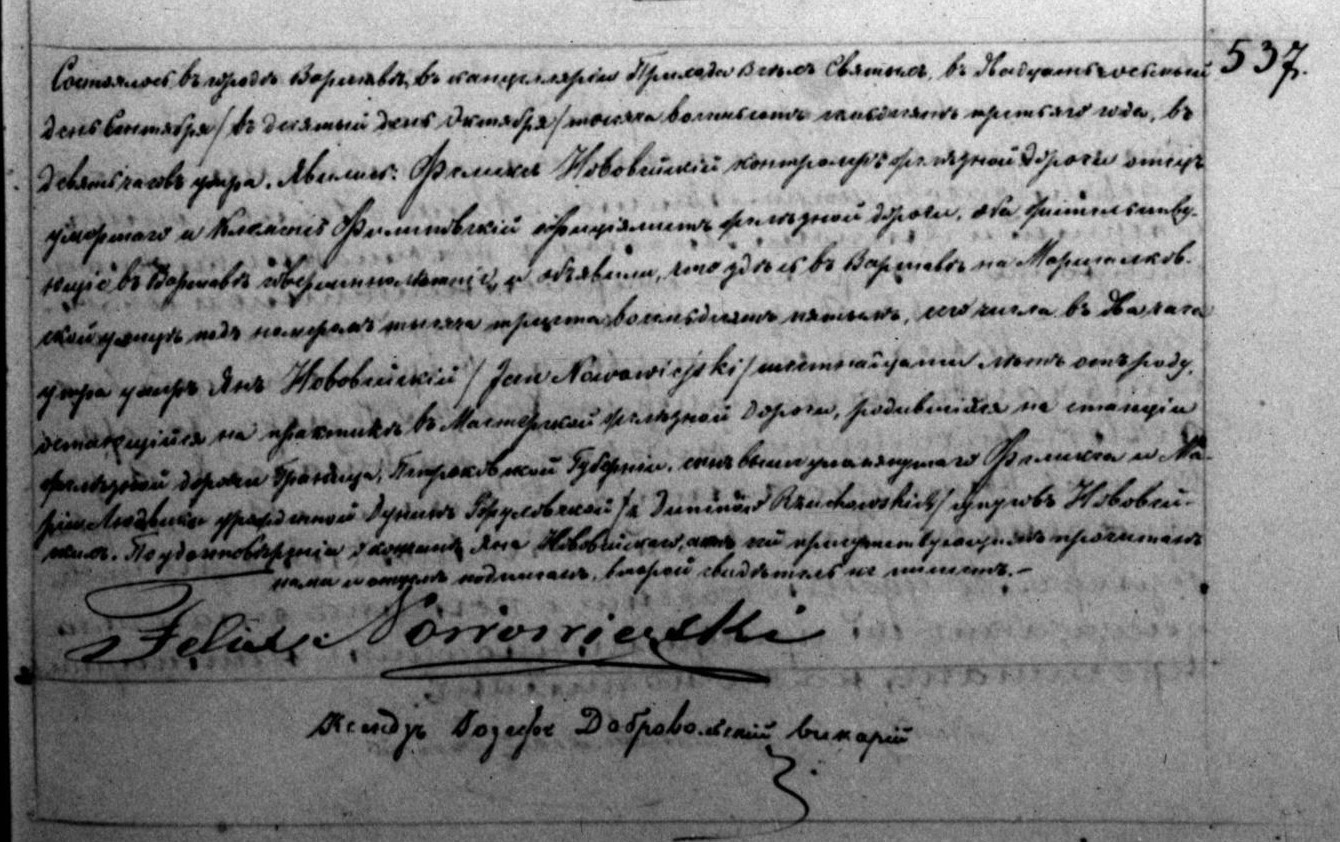 Состоялось въ городѣ Варшавѣ, въ канцеляріи Прихода Всѣхъ Святыхъ, въ Двадцать восьмый 537.
день Сентября / въ десятый день Октября / тысяча восемьсотъ семьдесятъ третьяго года, въ
девять часовъ утра. Явились: Феликсъ Нововейскій контролеръ желѣзной дороги отецъ
умершаго и Клементій Филиповскій оффиціалистъ желѣзной дороги, оба жительству-
ющіе въ Варшавѣ совершеннолѣтніе, и объявили, что здѣсь въ Варшавѣ на Маршалков-
ской улицѣ подъ номеромъ тысяча триста восемьдесятъ пятымъ, сего числа въ два часа
утра умеръ Янъ Нововейскій / Jan Nowowiejski / шестнадцати лѣтъ отъ роду,
остающійся на практикѣ въ Мастерской желѣзной дороги, родившійся на станціи
желѣзной дороги Граница, Петроковской Губерніи, сынъ вышеупомянутаго Феликса и Ма-
ріи Людвики урожденной Дунинъ / z Duninów Rzuchowskich / супруговъ Нововей-
скихъ. По удостовѣреніи о кончинѣ Яна Нововейскаго, актъ сей присутствующимъ прочитанъ
нами и отцемъ подписанъ, второй свидѣтель не пишетъ.—
Felix Nowowiejski
Ксендзъ Іозефъ Добровольскій викарій